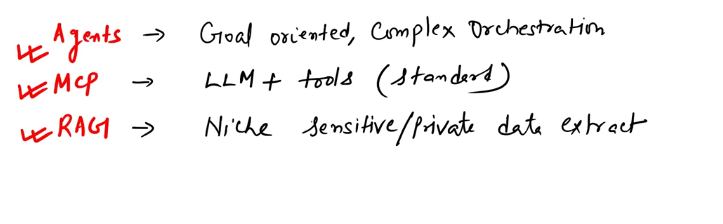 Agents → Goal oriented, Complex Orchestration
MCP → LLM + tools (Standard)
RAG → Niche Sensitive/Private data extract